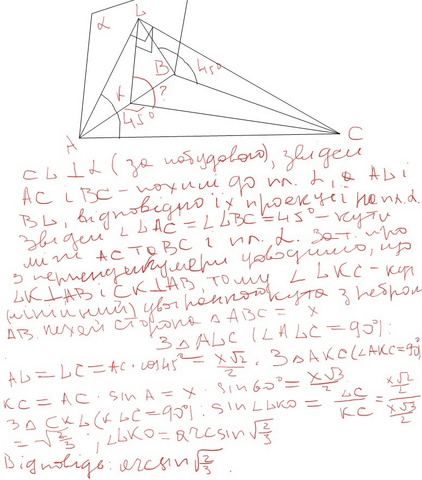 L
α
B
45°
K
?
45°
A
C
CL ⊥ α (за побудовою), звідси
AC і BC - похилі до пл. α, а AL і
BL, відповідно їх проекції на пл. α.
Звідси ∠LAC = ∠LBC = 45° - кути
між AC та BC і пл. α. За т. про
3 перпендикуляри доводимо, що
LK⊥AB і CK⊥AB, тому ∠LKC - кут
(лінійний) двогранного кута з ребром
AB. нехай сторона △ABC = x
З △ALC (∠ALC = 90°):
AL = LC = AC · cos45° = x√2/2. З △AKC (∠AKC = 90°)
KC = AC · sin A = x · sin60° = x√3/2
З △CKL (∠KLC = 90°): sin∠LKC = LC/KC = (x√2/2)/(x√3/2)
= √(2/3); ∠LKC = arcsin√(2/3)
Відповідь: arcsin√(2/3).